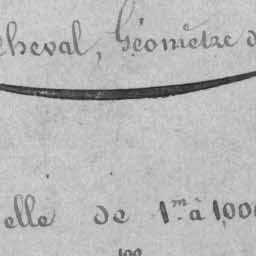 Cheval, Géomètre d
elle de 1.m à 1,000
100